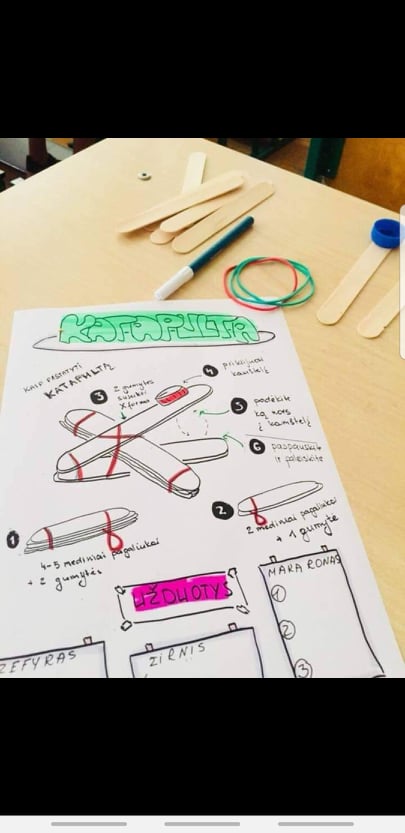 KATAPULTA
KAIP PASTATYTI
KATAPULTĄ
3
2 gumytės
X forma
4
prikijuoi
kamštelį
5
padėkite
ką nors
į kamštelį
6
paspauskite
ir paleiskite
1
4-5 mediniai pagaliukai
+ 2 gumytės
2
2 mediniai pagaliukai
+ 1 gumytė
UŽDUOTYS
ZEFYRAS
ŽIRNIS
MAKARONAS
1
2
3